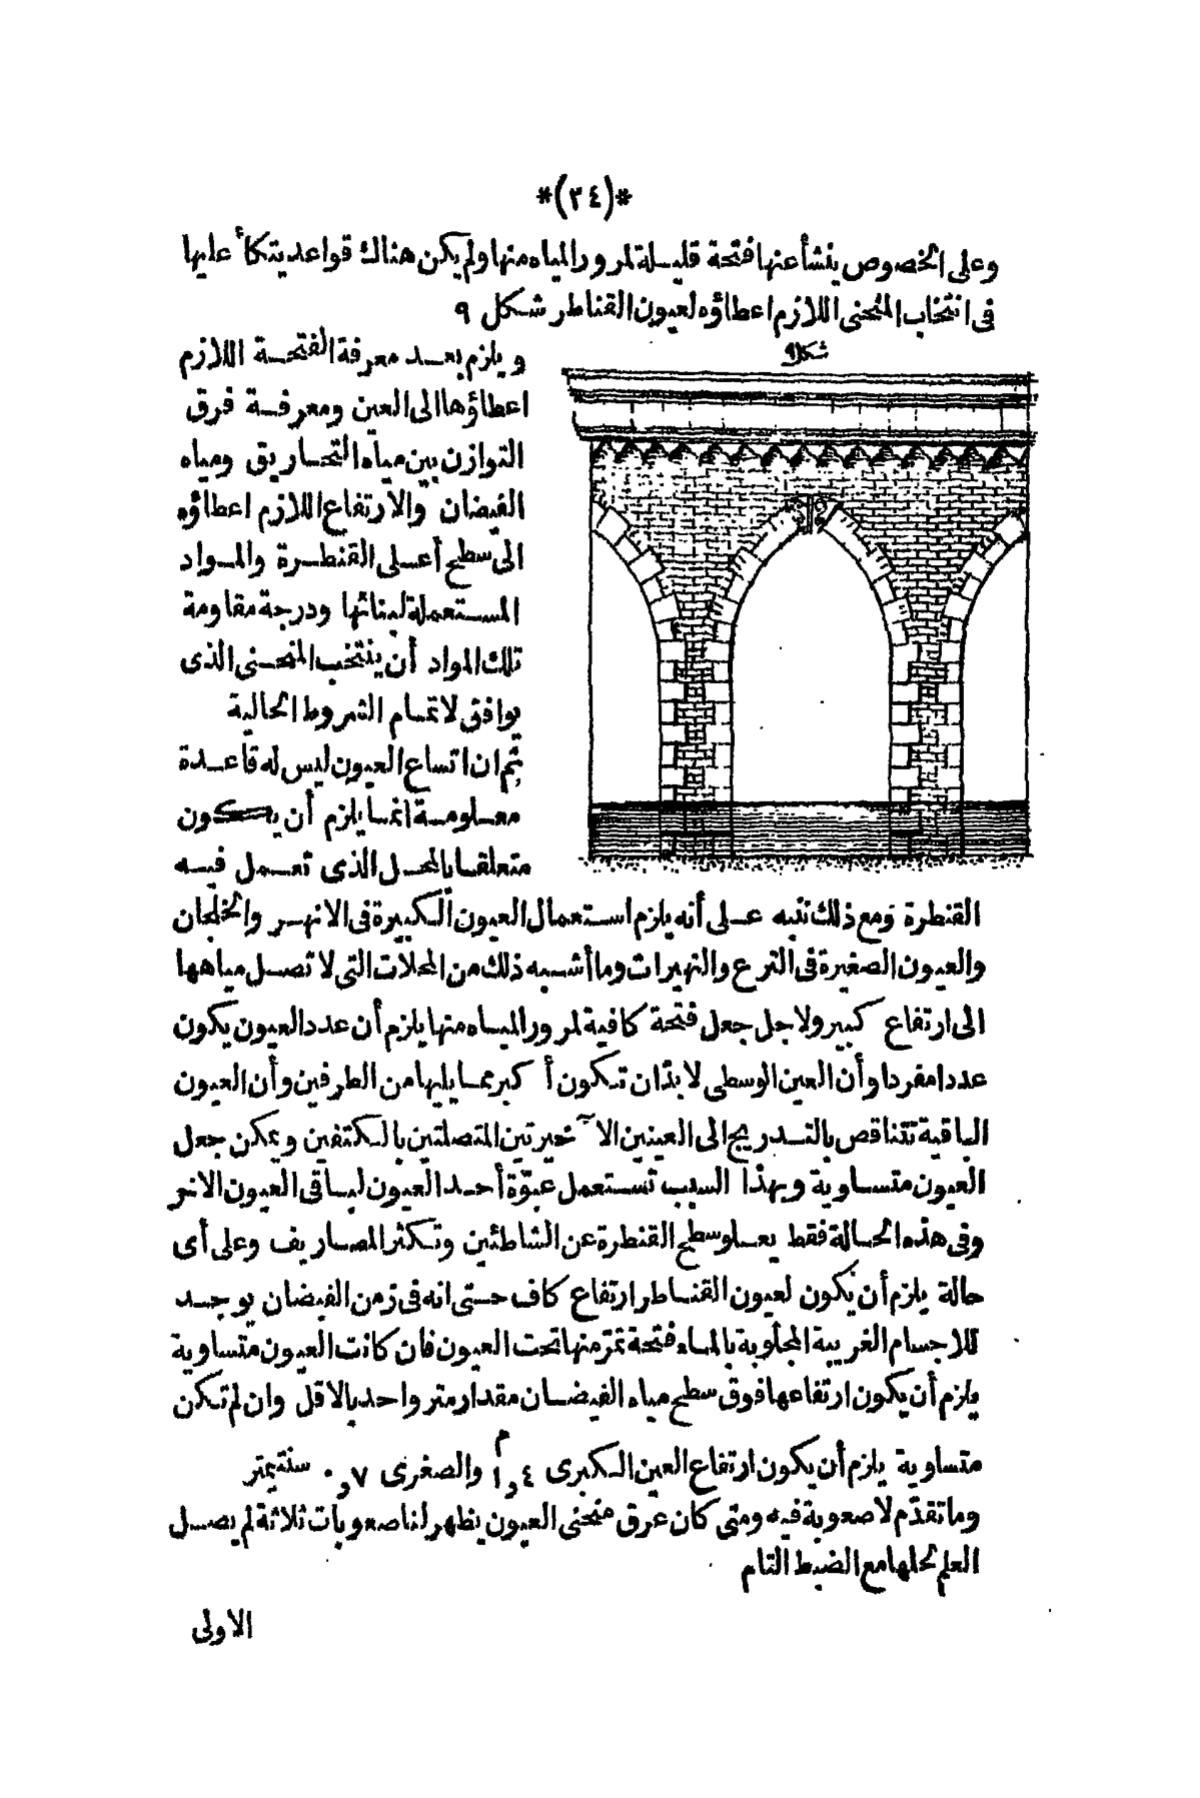 *(٣٤)*
وعلى الخصوص ينشأ عنها فتحة قليلة لمرور المياه منها ولم يكن هناك قواعد يتكأ عليها
فى انتخاب المنحنى اللازم اعطاؤه لعيون القناطر شكل ٩
شكل ٩
ويلزم بعد معرفة الفتحة اللازم
اعطاؤها الى العين ومعرفة فرق
التوازن بين مياه التحاريق ومياه
الفيضان والارتفاع اللازم اعطاؤه
الى سطح أعلى القنطرة والمواد
المستعملة لبنائها ودرجة مقاومة
تلك المواد أن ينتخب المنحنى الذى
يوافق لاتمام الشروط الحالية
ثم ان اتساع العيون ليس له قاعدة
معلومة انما يلزم أن يكون
متعلقا بالمحل الذى تعمل فيه
القنطرة ومع ذلك ننبه على أنه يلزم استعمال العيون الكبيرة فى الانهر والخلجان
والعيون الصغيرة فى الترع والنهيرات وما أشبه ذلك من المحلات التى لا تصل مياهها
الى ارتفاع كبير ولاجل جعل فتحة كافية لمرور المياه منها يلزم أن عدد العيون يكون
عددا مفردا وأن العين الوسطى لابد ان تكون أكبر مما يليها من الطرفين وأن العيون
الباقية تتناقص بالتدريج الى العينين الاخيرتين المتصلتين بالكتفين ويمكن جعل
العيون متساوية وبهذا السبب تستعمل عبوّة أحد العيون لباقى العيون الاخر
وفى هذه الحالة فقط يعلو سطح القنطرة عن الشاطئين وتكثر المصاريف وعلى أى
حالة يلزم أن يكون لعيون القناطر ارتفاع كاف حتى انه فى زمن الفيضان يوجد
للاجسام الغريبة المجلوبة بالماء فتحة تمرّ منها تحت العيون فان كانت العيون متساوية
يلزم أن يكون ارتفاعها فوق سطح مياه الفيضان مقدار متر واحد بالاقل وان لم تكن
متساوية يلزم أن يكون ارتفاع العين الكبرى ١٫٤ م والصغرى ٠٫٧ سنتيمتر
وما تقدّم لا صعوبة فيه ومتى كان عرق منحنى العيون يظهر لنا صعوبات ثلاثة لم يصل
العلم لحلها مع الضبط التام
الاولى